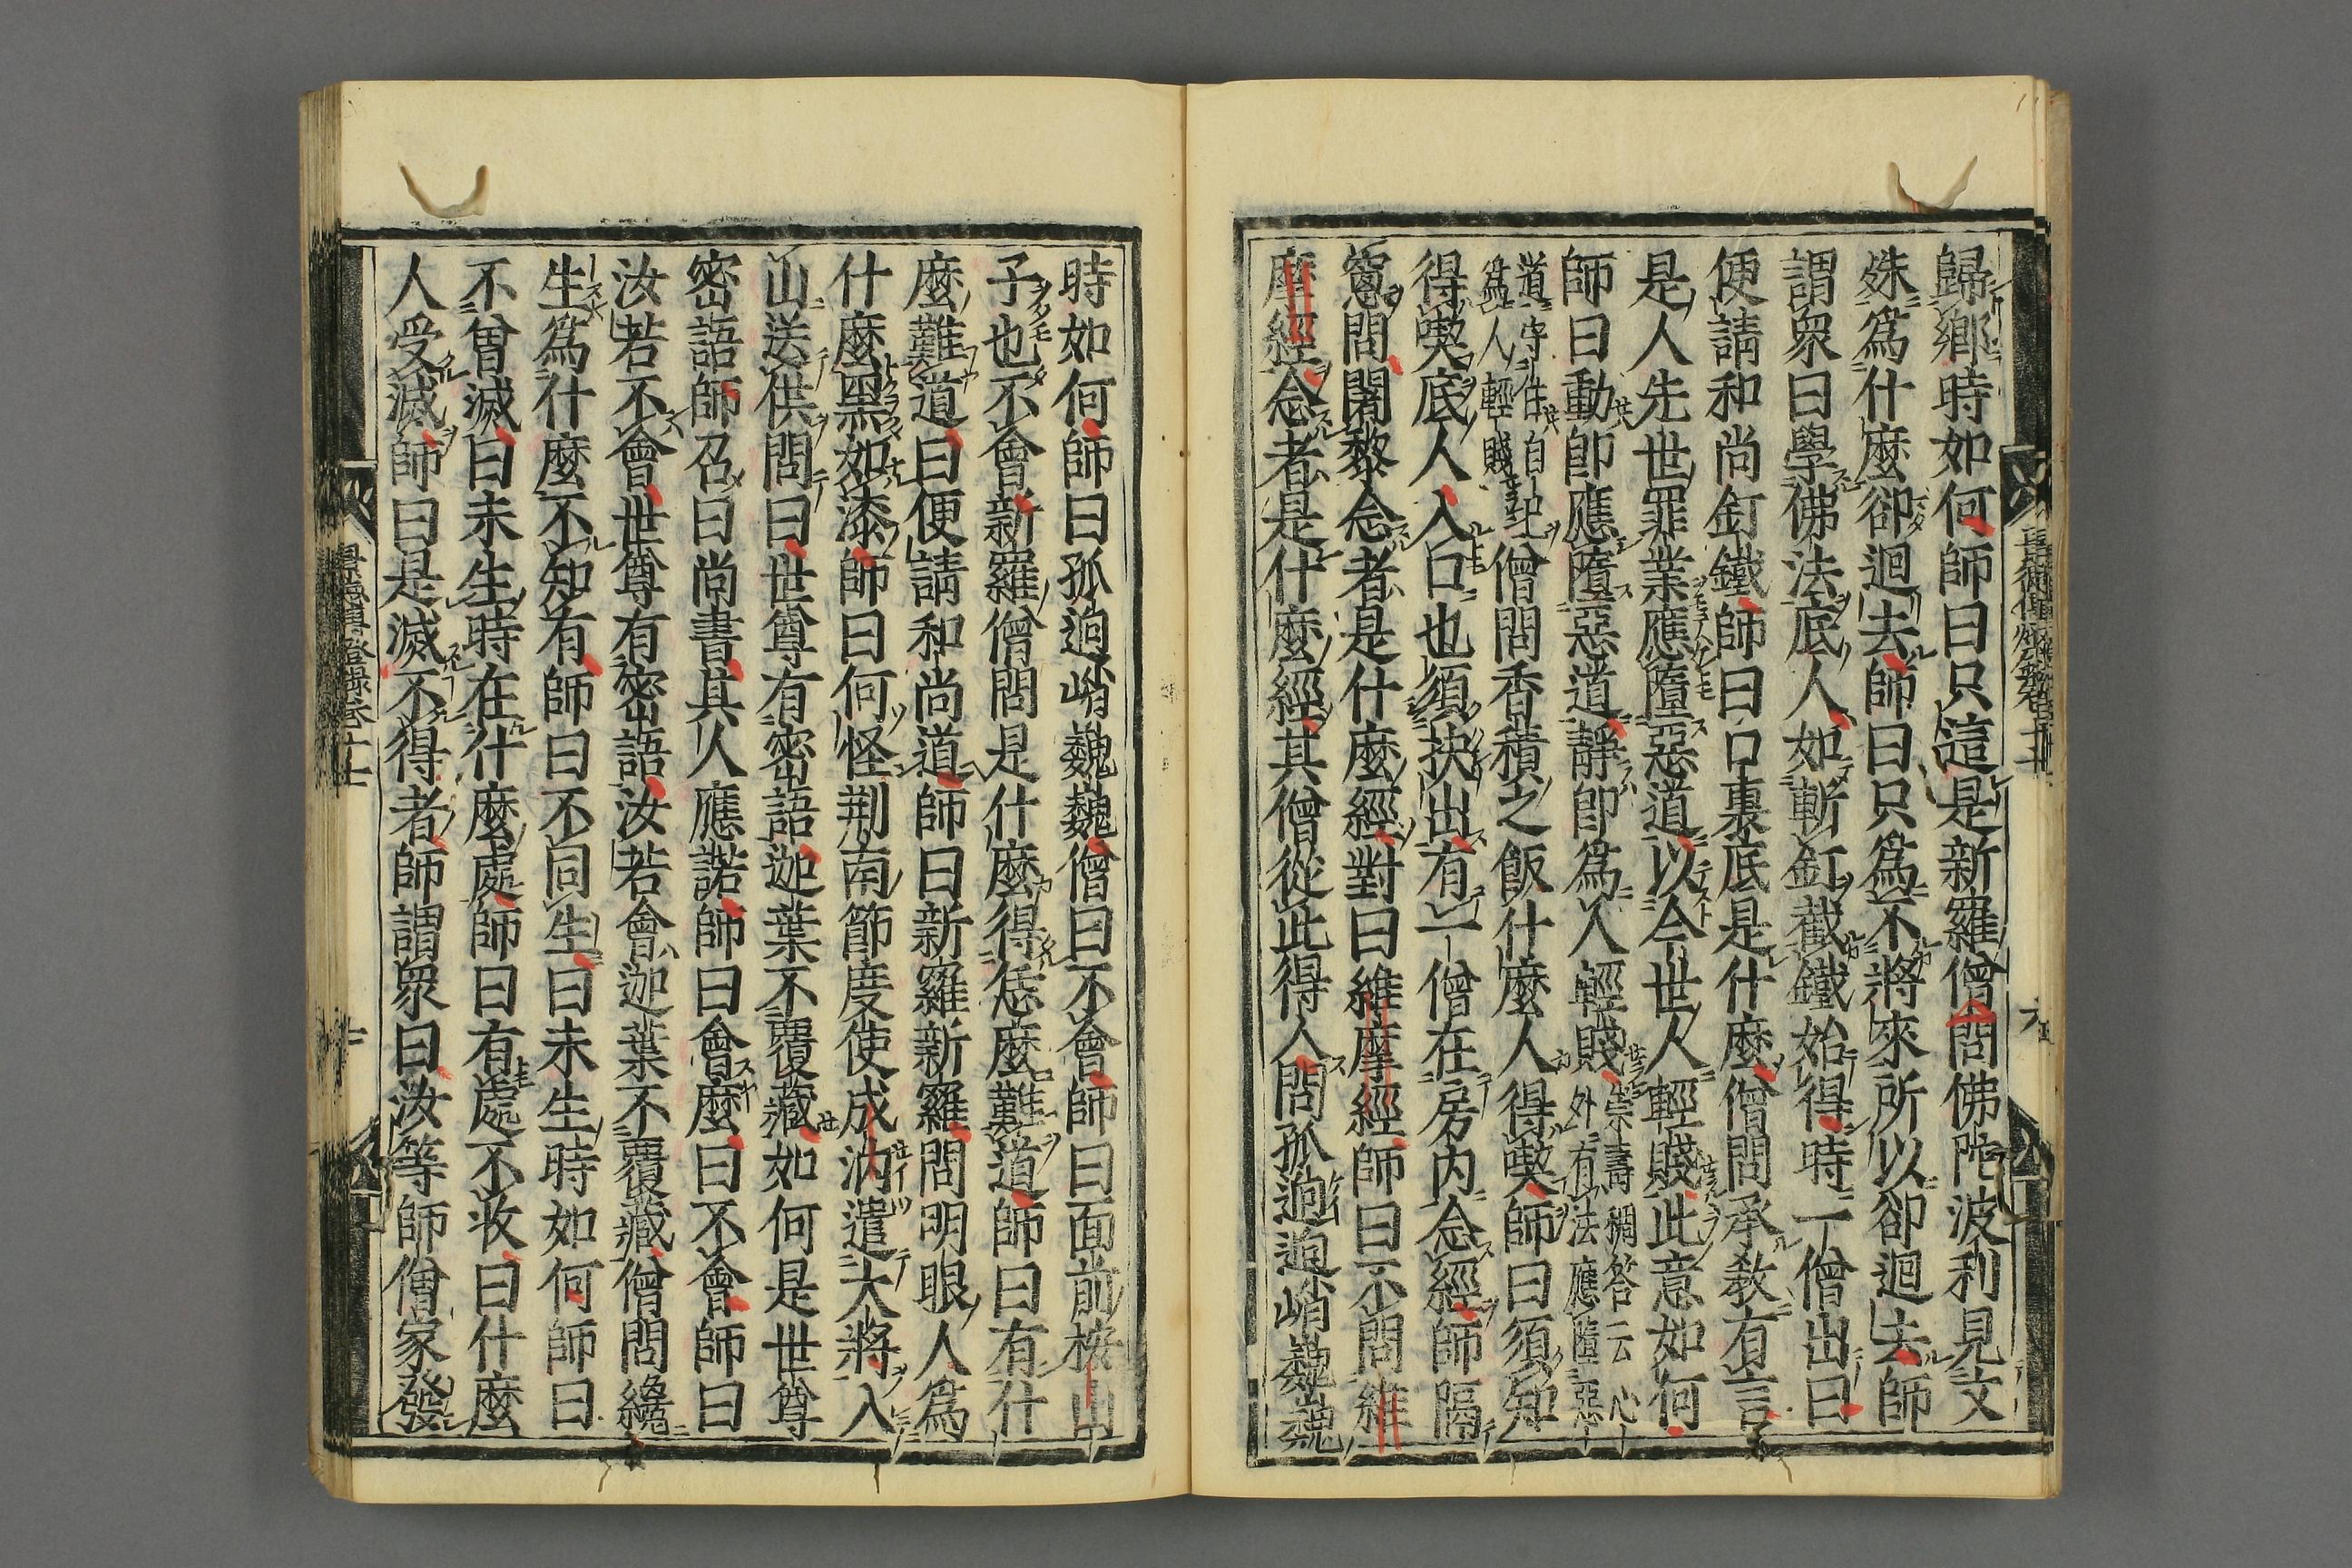 歸鄉時如何師曰只這是新羅僧問佛陀波利見文
殊爲什麼卻迴去師曰只爲不將來所以卻迴去師
謂衆曰學佛法底人如斬釘截鐵始得時一僧出曰
便請和尚釘鐵師曰口裏底是什麼僧問承敎有言
是人先世罪業應墮惡道以今世人輕賤此意如何
師曰動卽應墮惡道靜卽爲人輕賤
崇壽稠答云心
外有法應墮惡
道守住自己
爲人輕賤
僧問香積之飯什麼人得喫師曰須知
得喫底人入口也須抉出有一僧在房內念經師隔
窻問闍黎念者是什麼經對曰維摩經師曰不問維
摩經念者是什麼經其僧從此得入問孤迥迥峭巍巍
時如何師曰孤迥峭巍巍僧曰不會師曰面前桉山
子也不會新羅僧問是什麼得恁麼難道師曰有什
麼難道曰便請和尚道師曰新羅新羅問明眼人爲
什麼黑如漆師曰何怪荆南節度使成汭遣大將入
山送供問曰世尊有密語迦葉不覆藏如何是世尊
密語師召曰尚書其人應諾師曰會麼曰不會師曰
汝若不會世尊有密語汝若會迦葉不覆藏僧問纔
生爲什麼不知有師曰不同生曰未生時如何師曰
不曾滅曰未生時在什麼處師曰有處不收曰什麼
人受滅師曰是滅不得者師謂衆曰汝等師僧家發